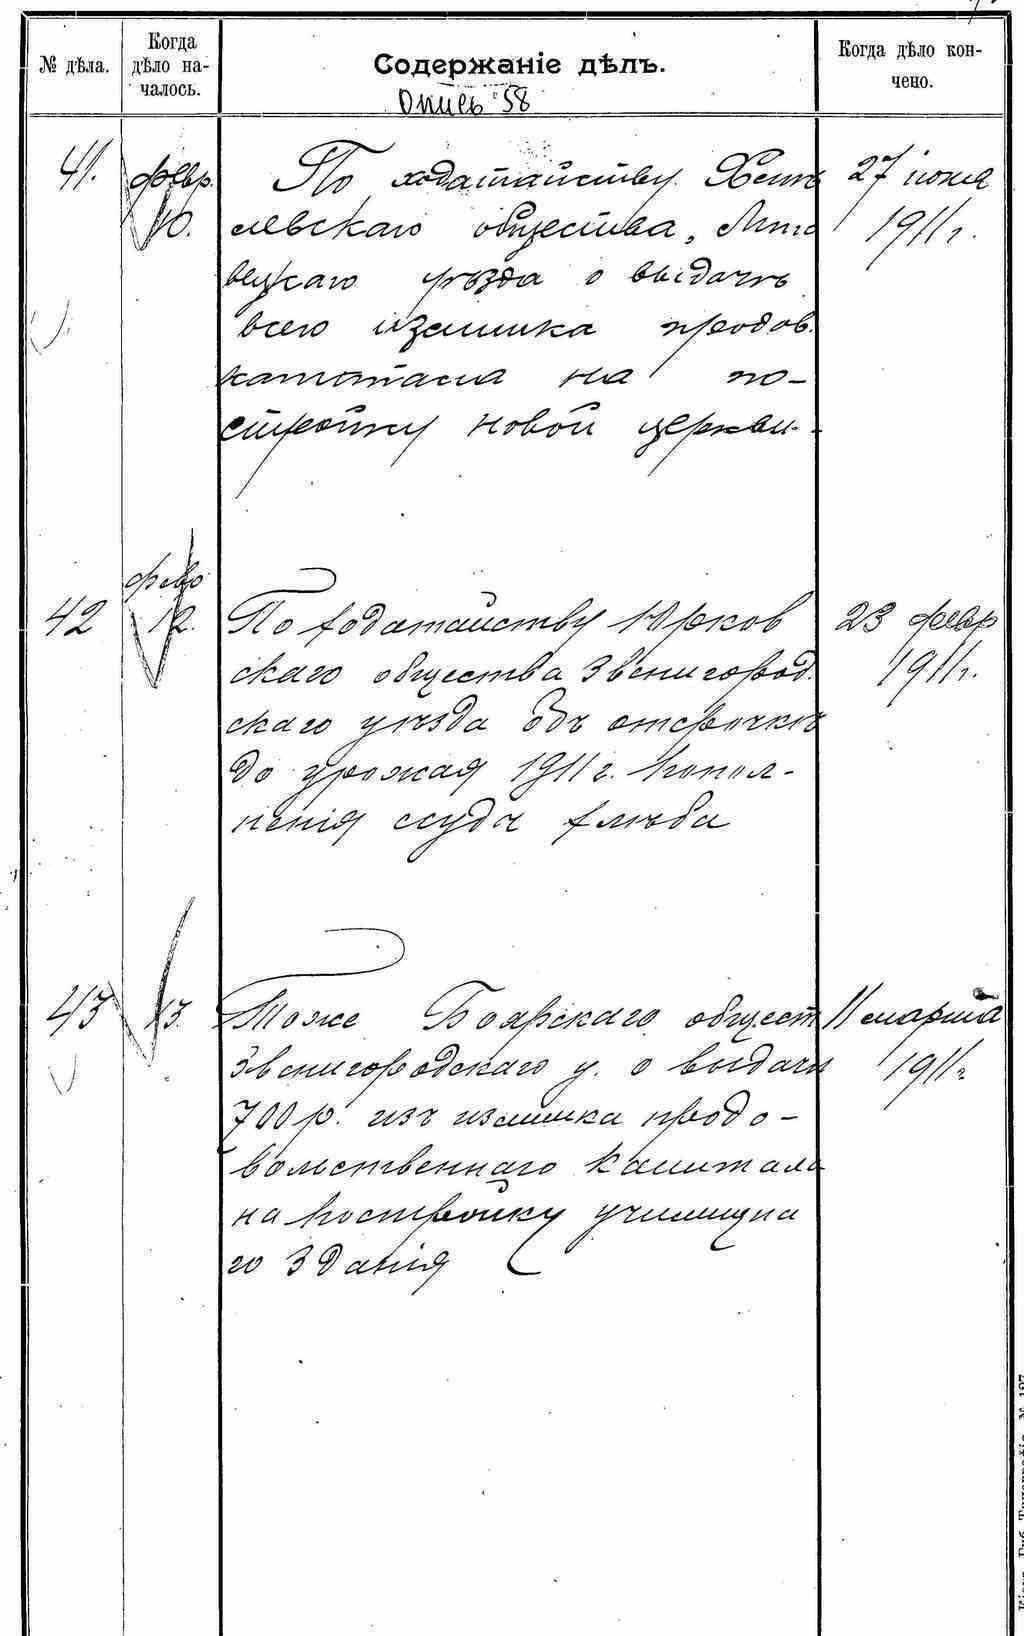 № дѣла.
Когда
дѣло на-
чалось.
Содержаніе дѣлъ.
Когда дѣло кон-
чено.
Опись 58
41.
февр.
10.
По ходатайству
левскаго общества, Липо
вецкаго уѣзда о выдачѣ
всего излишка продов.
капитала на по-
стройку новой церкви.
27 іюня
1911 г.
42
февр
12.
По ходатайству Юрков
скаго общества Звенигород.
скаго уѣзда объ отсрочкѣ
до урожая 1911 г. попол-
ненія ссуды хлѣба
23 февр
1911 г.
43
13.
Тоже Боярскаго общест
Звенигородскаго у. о выдачи
700 р. изъ излишка продо-
вольственнаго капитала
на постройку училищна
го зданія
11 марта
1911 г.
Губ. Типографія № 197